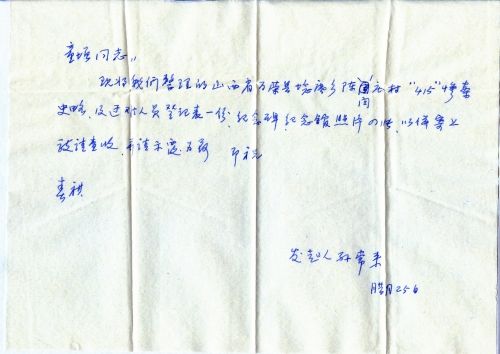 童垣同志：
现将我们整理的山西省万荣县 乡陈 村"415"惨案
史略，及遇难人员登记表一份，纪念碑，纪念馆照片 四张，以供备上
敬请查收，并请示 即祝
春祺
发起人 孙常来
腊月25日